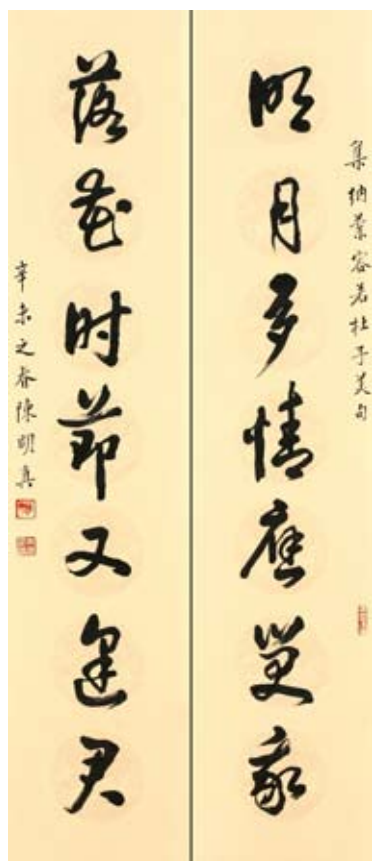 集納蘭容若杜子美句
明月多情應笑我
落花时節又逢君
辛未之春陳明真